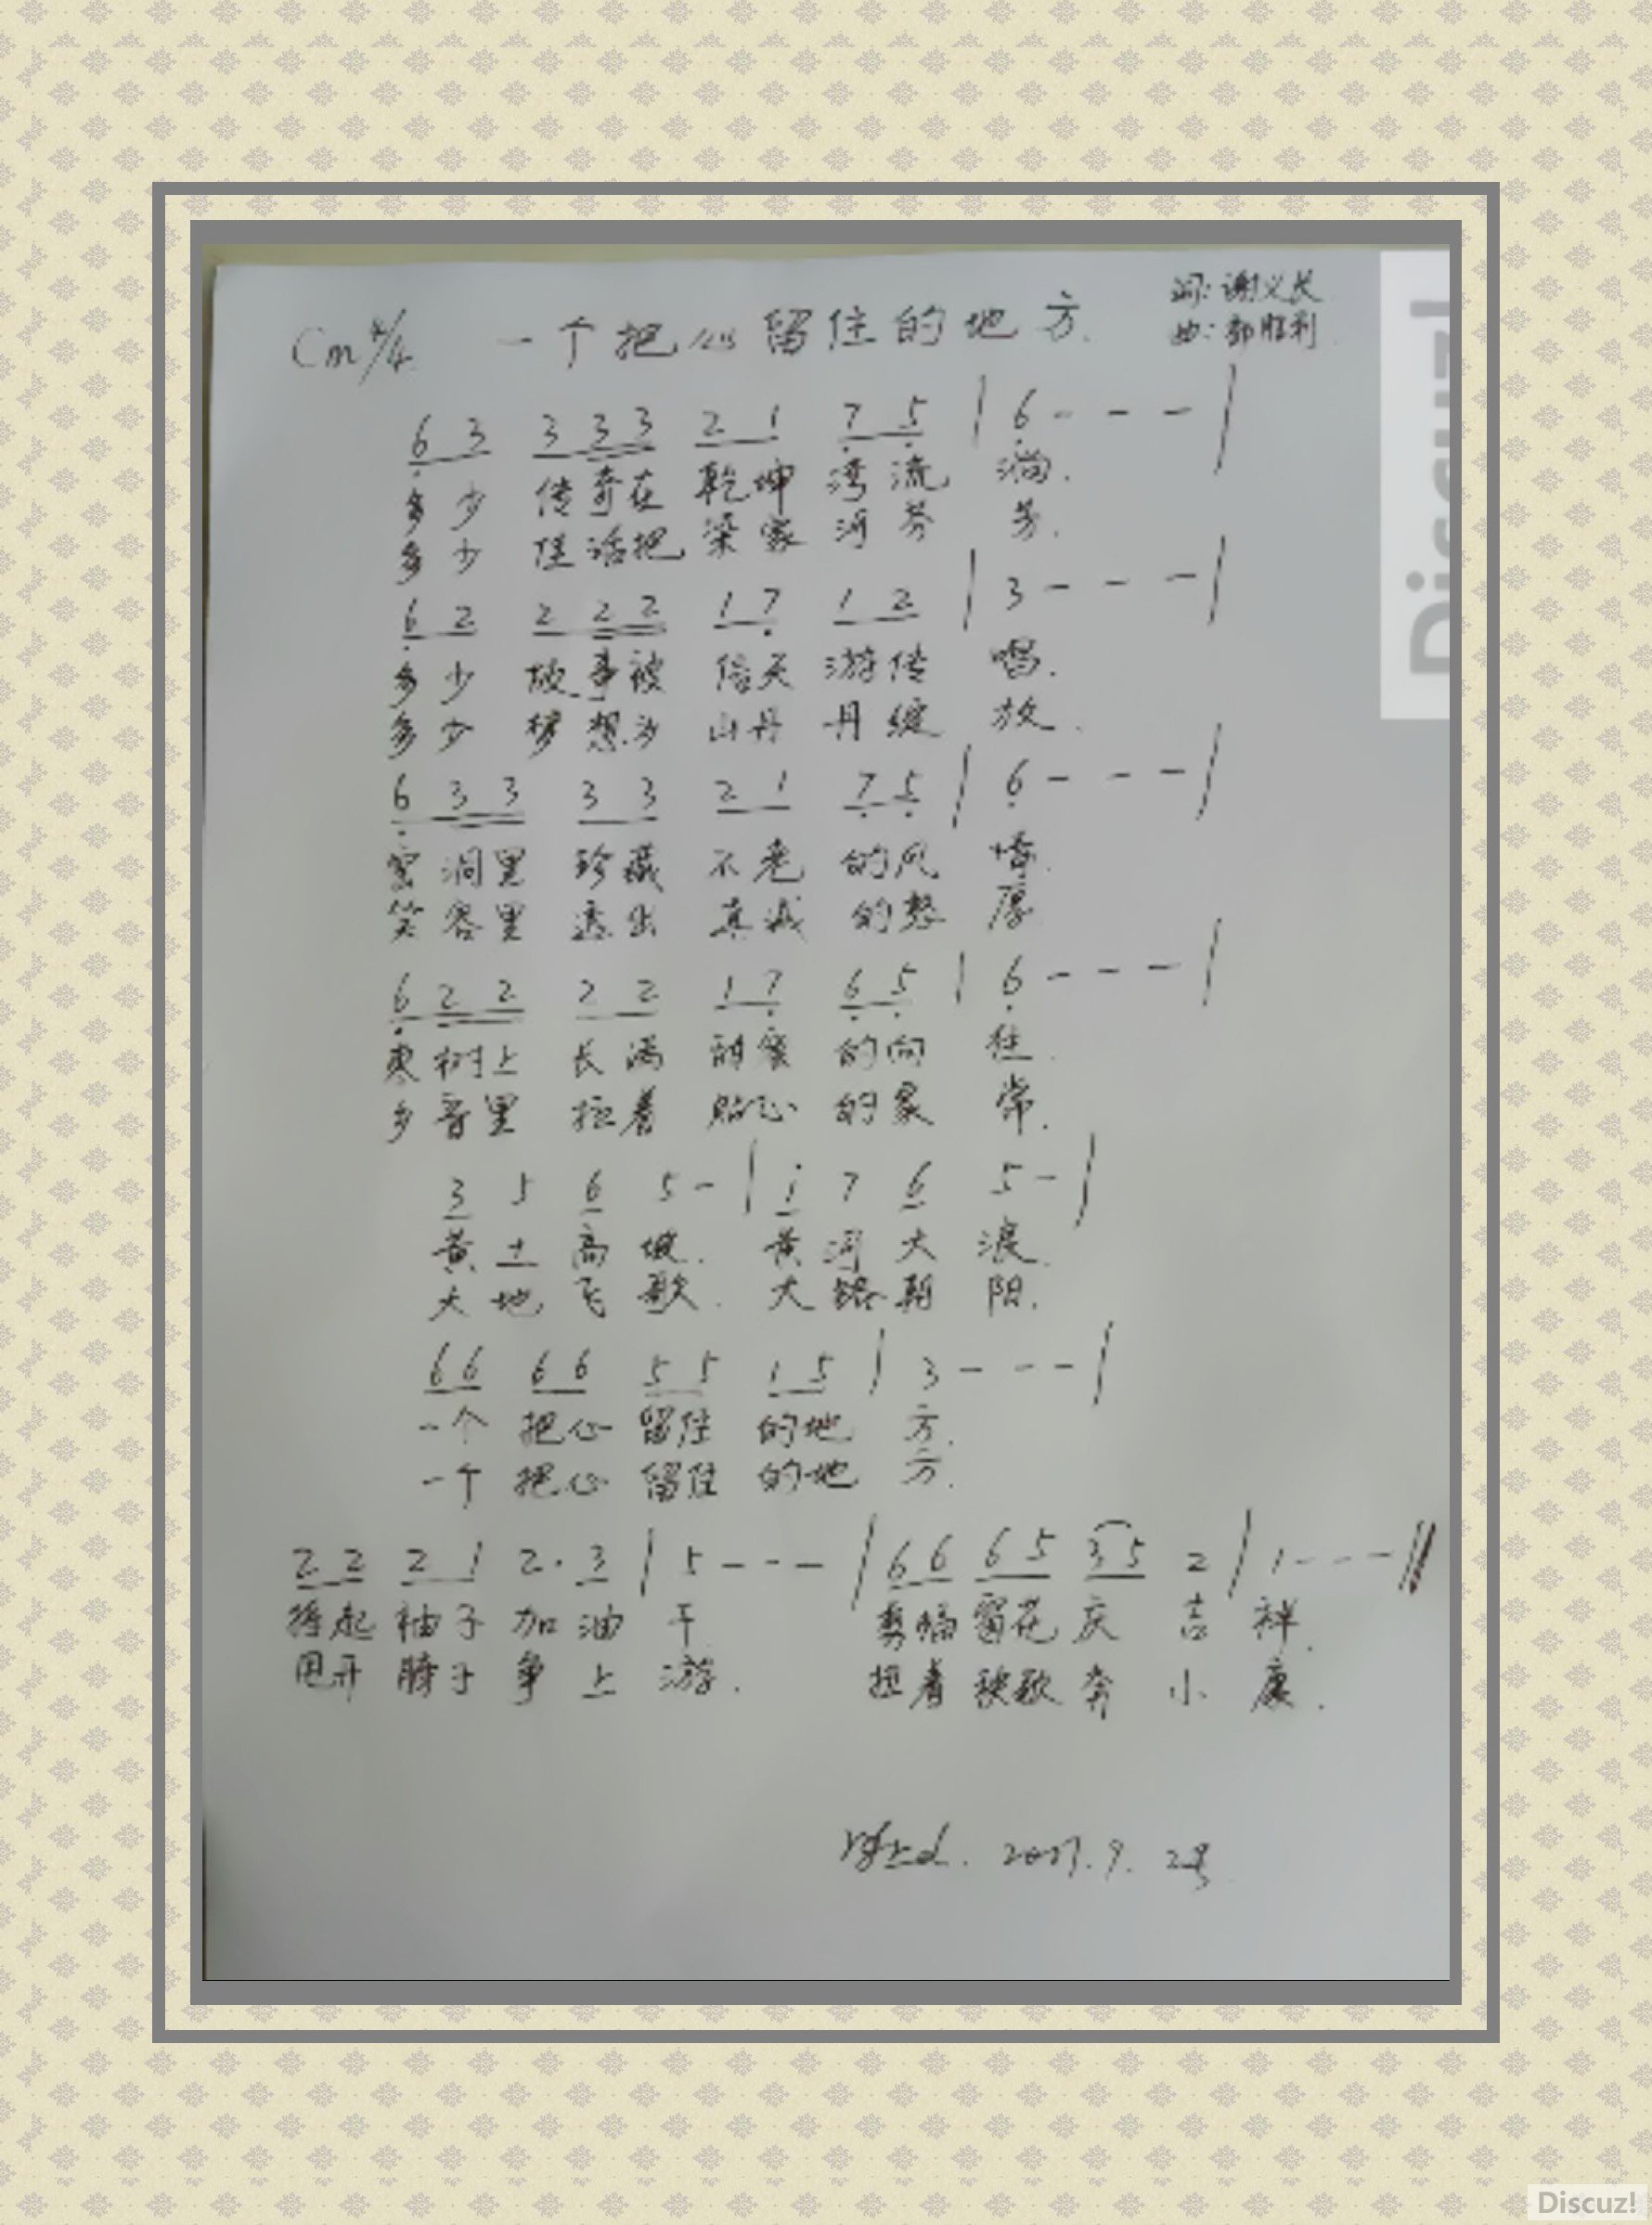 词：谢义长
Cm 4/4 一个把心留住的地方.
曲：郭胜利
6 3 3 3 3 2 1 7 5 | 6 - - - |
多少 传奇在 乾坤 湾流 淌.
多少 佳话把 梁家 河芬 芳.
6 2 2 2 2 1 7 1 2 | 3 - - - |
多少 故事被 信天 游传 唱.
多少 梦想为 山丹 丹绽 放.
6 3 3 3 3 2 1 7 5 | 6 - - - |
窑洞里 珍藏 不老 的风 情.
笑容里 透出 真诚 的憨 厚.
6 2 2 2 2 1 7 6 5 | 6 - - - |
枣树上 长满 甜蜜 的向 往.
乡音里 拉着 贴心 的家 常.
3 5 6 5 - | 1 7 6 5 - |
黄土高坡. 黄河大浪.
大地飞歌. 大路朝阳.
6 6 6 6 5 5 1 5 | 3 - - - |
一个 把心 留住 的地 方.
一个 把心 留住 的地 方.
2 2 2 1 2· 3 | 5 - - - | 6 6 6 5 3 5 2 | 1 - - - ||
捋起 袖子 加油 干 剪幅 窗花 庆 吉 祥.
甩开 膀子 争上 游. 扭着 秧歌 奔 小 康.
Discuz!
Discuz!